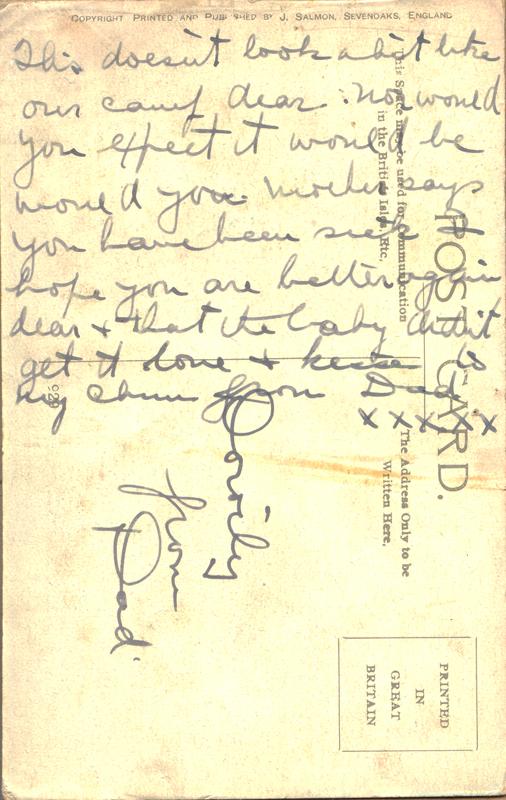 COPYRIGHT PRINTED AND PUBLISHED BY J. SALMON, SEVENOAKS, ENGLAND
This doesn't look a bit like
our camp dear. Nor would
you expect it would be
would you. Mother says
you have been sick I
hope you are better again
dear & that the baby didn't
get it love & kisses to
my chum from Dad
x x x x x
Dorothy
from
Dad.
POST CARD.
This Space may be used for Communication
in the British Isles, Etc.
The Address Only to be
Written Here.
PRINTED
IN
GREAT
BRITAIN